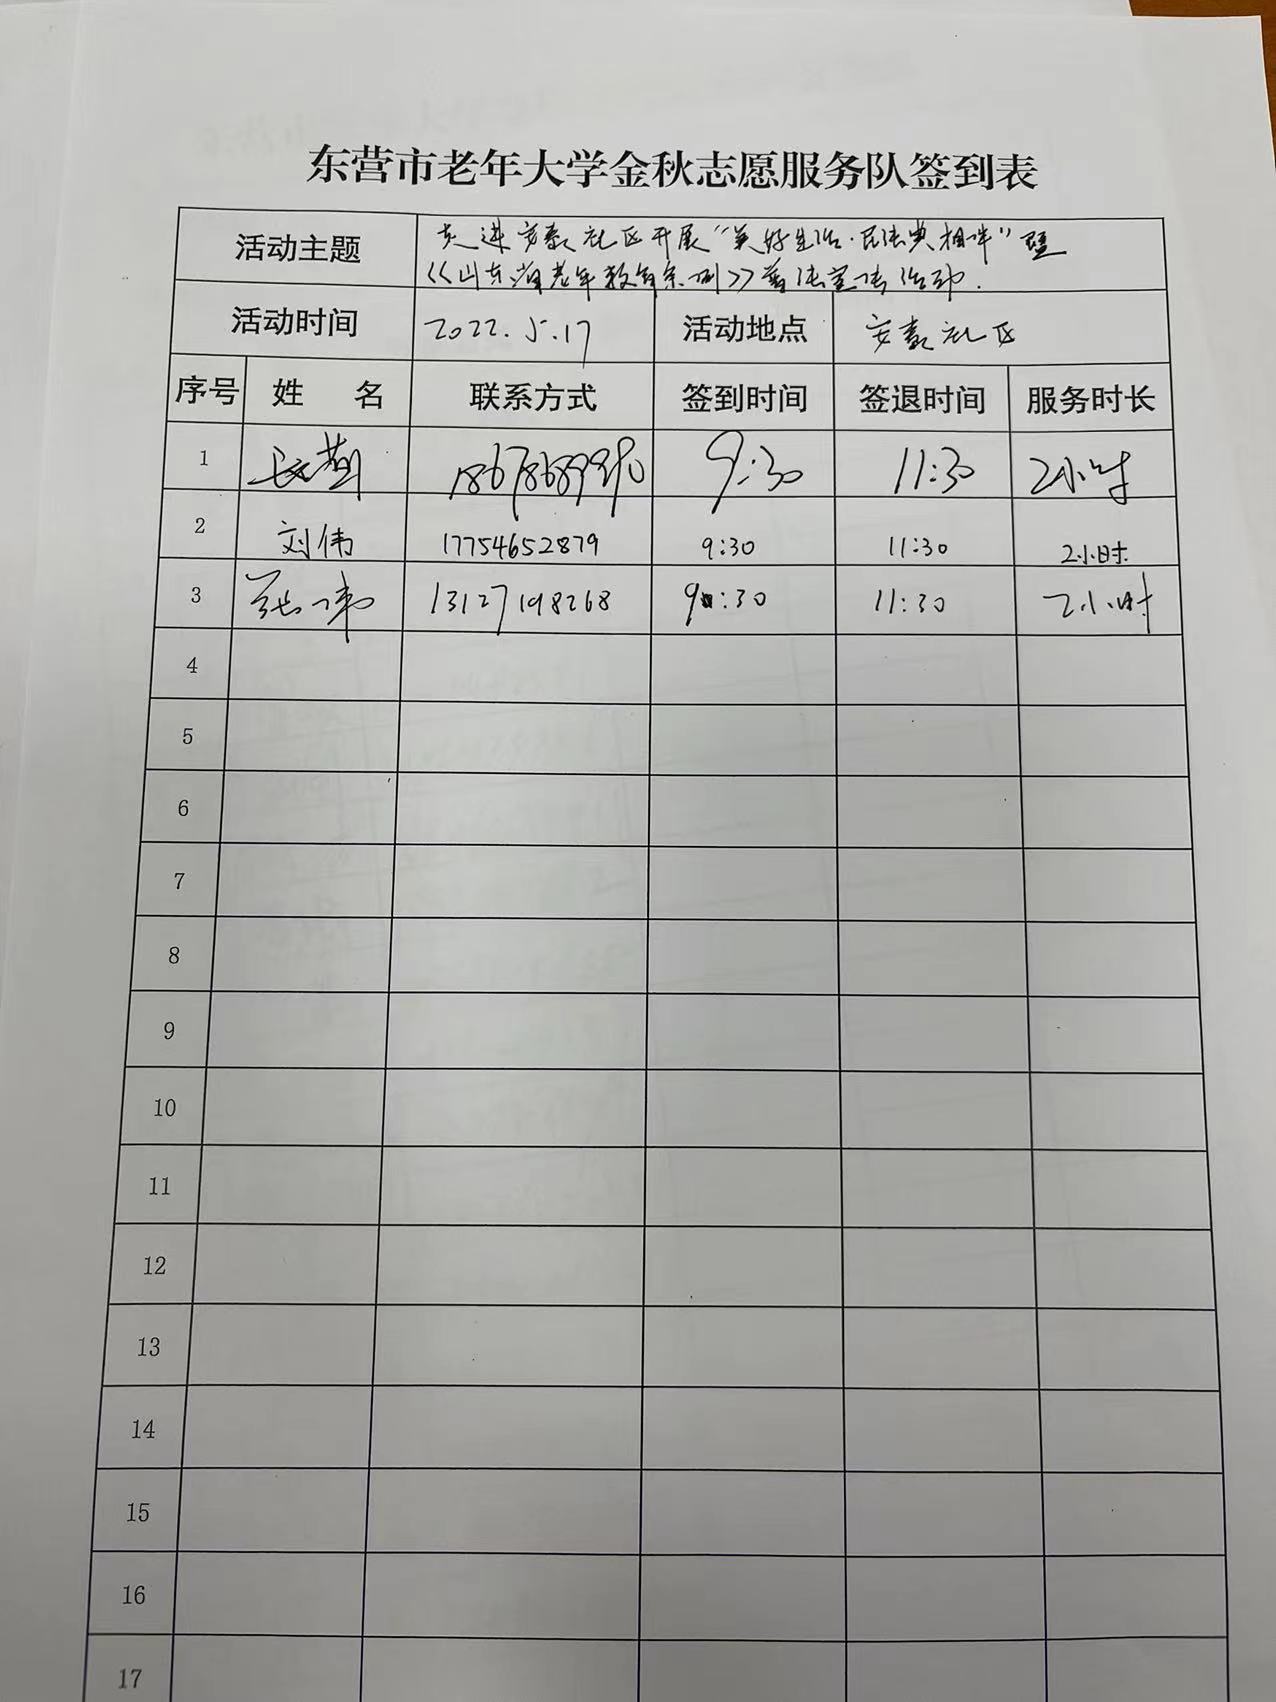 东营市老年大学金秋志愿服务队签到表
活动主题 走进安泰社区开展“美好生活·民法典相伴”暨
《山东省老年教育条例》普法宣传活动.
活动时间 2022.5.17 活动地点 安泰社区
序号 姓 名 联系方式 签到时间 签退时间 服务时长
1 9:30 11:30 2小时
2 刘伟 17754652879 9:30 11:30 2小时
3 13127198268 9:30 11:30 2小时
4
5
6
7
8
9
10
11
12
13
14
15
16
17